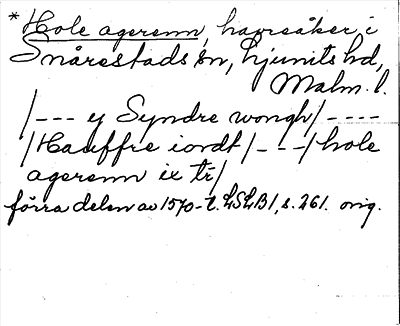 * Hole agerenn, havresåker i
Snårestads sn, Ljunits hd,
Malm. l.
/--- y Syndre wongh/ ----
/Hauffre iordt/---/hole
agerenn ix tr/
förra delen av 1570-t. LSLB1, s. 261. orig.